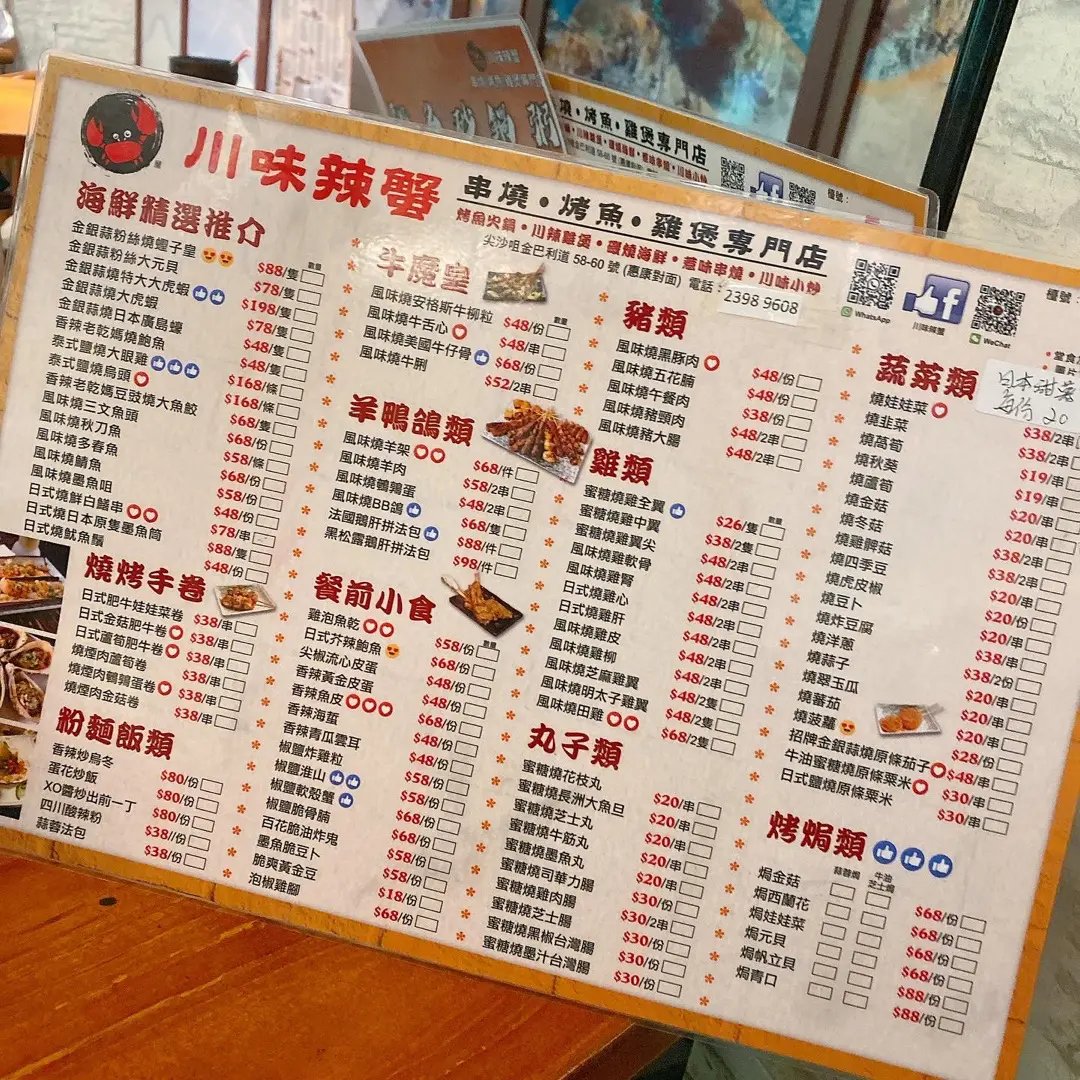 川味辣蟹
串燒•烤魚•雞煲專門店
烤魚火鍋•川辣雞煲•礀燒海鮮•惹味串燒•川味小炒
尖沙咀金巴利道 58-60 號 (惠康對面) 電話:
2398 9608
WhatsApp
川味辣蟹
WeChat
檯號:
海鮮精選推介
數量
金銀蒜粉絲燒蟶子皇 $88/隻
金銀蒜粉絲大元貝 $78/隻
金銀蒜燒特大大虎蝦 $198/隻
金銀蒜燒大虎蝦 $78/隻
金銀蒜燒日本廣島蠔 $48/隻
香辣老乾媽燒鮑魚 $48/隻
泰式鹽燒大眼雞 $168/條
泰式鹽燒烏頭 $168/條
香辣老乾媽豆豉燒大魚餃 $68/隻
風味燒三文魚頭 $68/份
風味燒秋刀魚 $58/條
風味燒多春魚 $68/份
風味燒鯖魚 $58/份
風味燒墨魚咀 $48/份
日式燒鮮白鱔串 $78/串
日式燒日本原隻墨魚筒 $88/隻
日式燒魷魚鬚 $48/份
燒烤手卷
日式肥牛娃娃菜卷 $38/串
日式金菇肥牛卷 $38/串
日式蘆筍肥牛卷 $38/串
燒煙肉蘆筍卷 $38/串
燒煙肉鵪鶉蛋卷 $38/串
燒煙肉金菇卷 $38/串
粉麵飯類
香辣炒烏冬 $80/份
蛋花炒飯 $80/份
XO醬炒出前一丁 $80/份
四川酸辣粉 $38//份
蒜蓉法包 $38/份
牛魔皇
數量
風味燒安格斯牛柳粒 $48/份
風味燒牛舌心 $48/份
風味燒美國牛仔骨 $68/份
風味燒牛脷 $52/2串
羊鴨鴿類
風味燒羊架 $68/件
風味燒羊肉 $58/2串
風味燒鵪鶉蛋 $48/2串
風味燒BB鴿 $68/隻
法國鵝肝拼法包 $88/件
黑松露鵝肝拼法包 $98/件
餐前小食
數量
雞泡魚乾 $58/份
日式芥辣鮑魚 $68/份
尖椒流心皮蛋 $48/份
香辣黃金皮蛋 $48/份
香辣魚皮 $68/份
香辣海蜇 $48/份
香辣青瓜雲耳 $48/份
椒鹽炸雞粒 $58/份
椒鹽淮山 $58/份
椒鹽軟殼蟹 $68/份
椒鹽脆骨腩 $68/份
百花脆油炸鬼 $58/份
墨魚脆豆卜 $58/份
脆爽黃金豆 $18/份
泡椒雞腳 $68/份
豬類
風味燒黑豚肉 $48/份
風味燒五花腩 $48/份
風味燒午餐肉 $38/份
風味燒豬頸肉 $48/2串
風味燒豬大腸 $48/2串
雞類
數量
蜜糖燒雞全翼 $26/隻
蜜糖燒雞中翼 $38/2隻
蜜糖燒雞翼尖 $48/2串
風味燒雞軟骨 $48/2串
風味燒雞腎 $48/2串
日式燒雞心 $48/2串
日式燒雞肝 $48/2串
風味燒雞皮 $48/2串
風味燒雞柳 $48/2串
風味燒芝麻雞翼 $48/2隻
風味燒明太子雞翼 $48/2隻
風味燒田雞 $68/2隻
丸子類
蜜糖燒花枝丸 $20/串
蜜糖燒長洲大魚旦 $20/串
蜜糖燒芝士丸 $20/串
蜜糖燒牛筋丸 $20/串
蜜糖燒墨魚丸 $20/串
蜜糖燒司華力腸 $30/份
蜜糖燒雞肉腸 $30/2串
蜜糖燒芝士腸 $30/份
蜜糖燒黑椒台灣腸 $30/份
蜜糖燒墨汁台灣腸 $30/份
蔬菜類
日本甜薯
每份 20
燒娃娃菜 $38/2串
燒韭菜 $38/2串
燒萵筍 $19/串
燒秋葵 $19/串
燒蘆筍 $20/串
燒金菇 $20/串
燒冬菇 $38/2串
燒雞髀菇 $38/2串
燒四季豆 $20/串
燒虎皮椒 $20/份
燒豆卜 $20/串
燒炸豆腐 $38/串
燒洋蔥 $38/2份
燒蒜子 $20/串
燒翠玉瓜 $20/串
燒蕃茄 $20/串
燒菠蘿 $28/份
招牌金銀蒜燒原條茄子 $48/串
牛油蜜糖燒原條粟米 $30/串
日式鹽燒原條粟米 $30/串
烤焗類
蒜蓉焗
牛油芝士焗
焗金菇 $68/份
焗西蘭花 $68/份
焗娃娃菜 $68/份
焗元貝 $68/份
焗帆立貝 $88/份
焗青口 $88/份